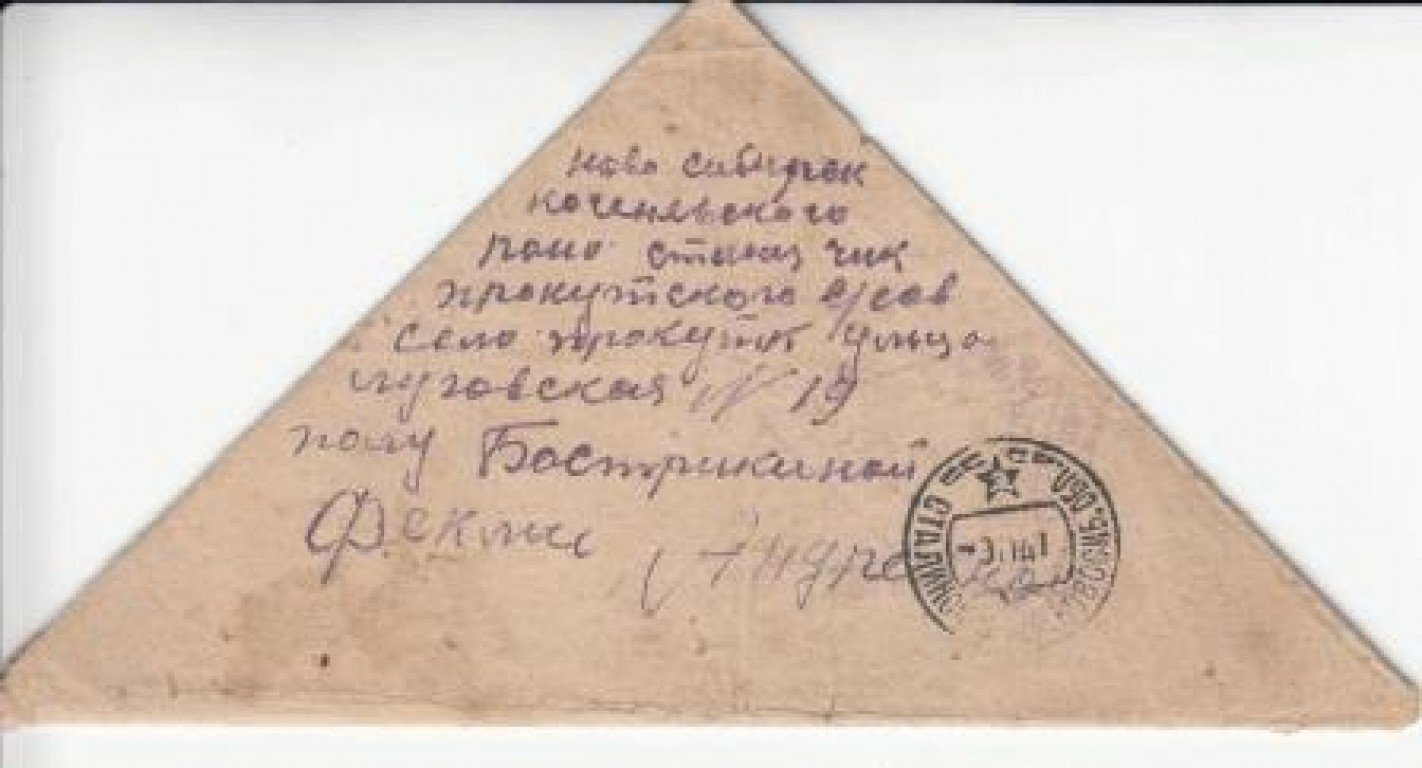 ново сибирск
коченевского
рано станция чик
прокутского с/сов
село прокутк улица
луговская N 19
полу Бострикиной
Фекли Андре
СТАЛИНСК НОВОСИБ. ОБЛ.